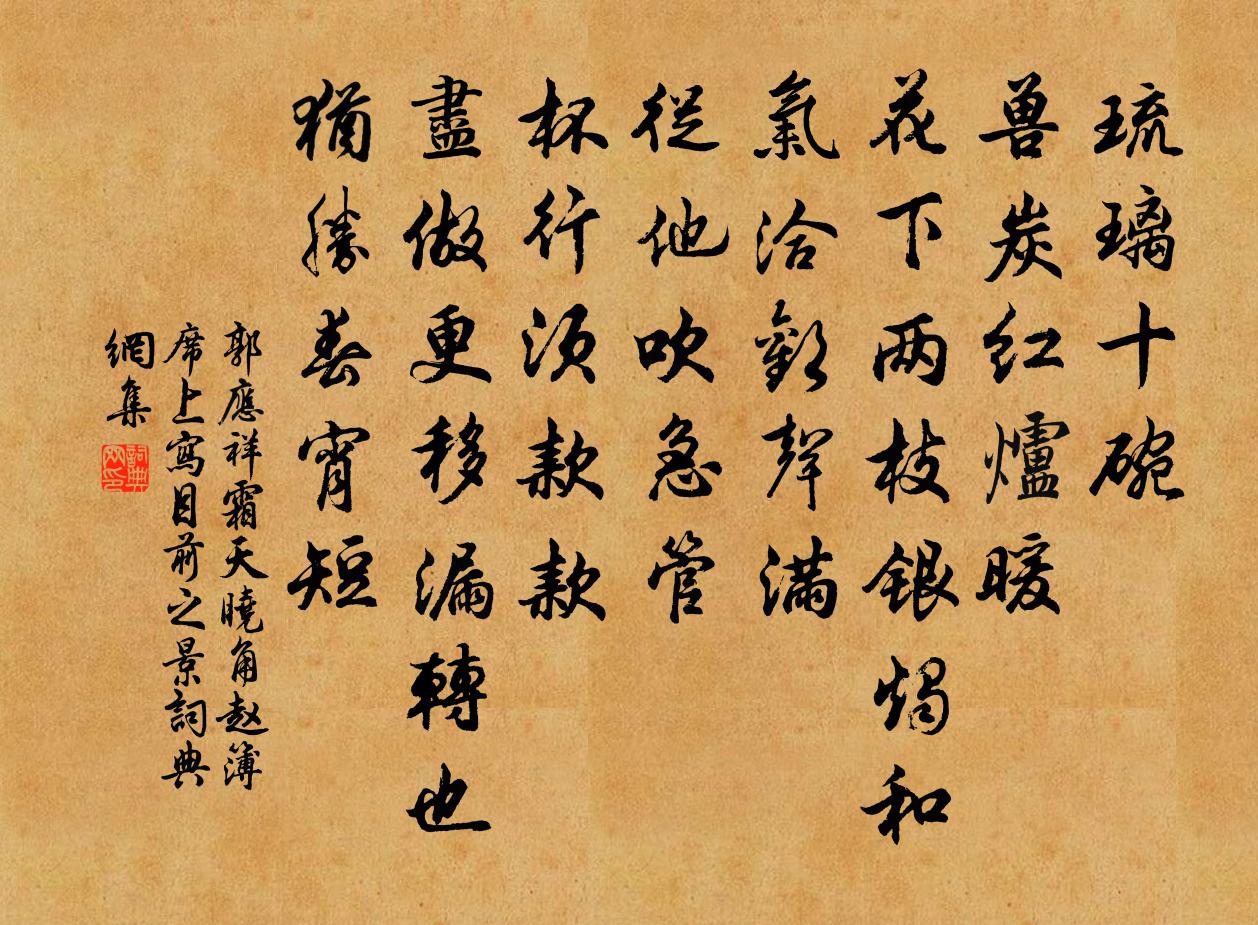 琉璃十碗
兽炭红爐暖
花下两枝銀燭和
氣洽歡聲滿
從他吹急管
杯行須款款
盡做更移漏轉也
猶勝春宵短
郭應祥霜天曉角赵簿
席上寫目前之景詞典
網集
詞典网印